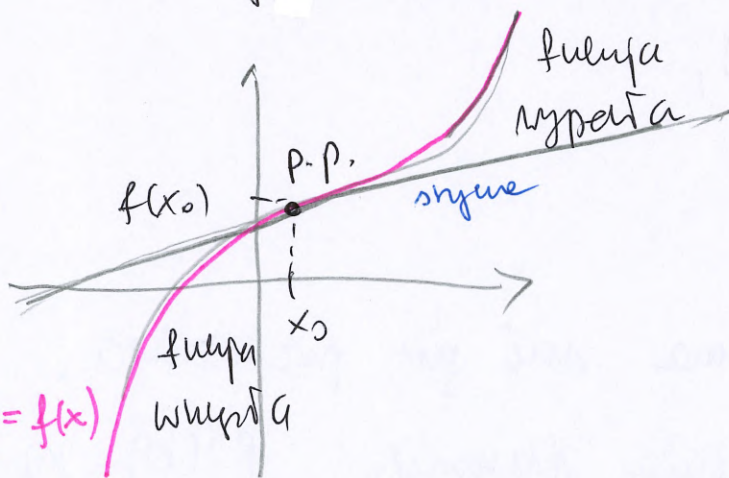 funkcja
wypukła
p.p.
f(x₀)
styczna
x₀
funkcja
wklęsła
= f(x)